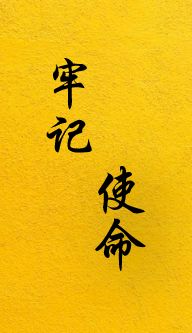 牢记
使命